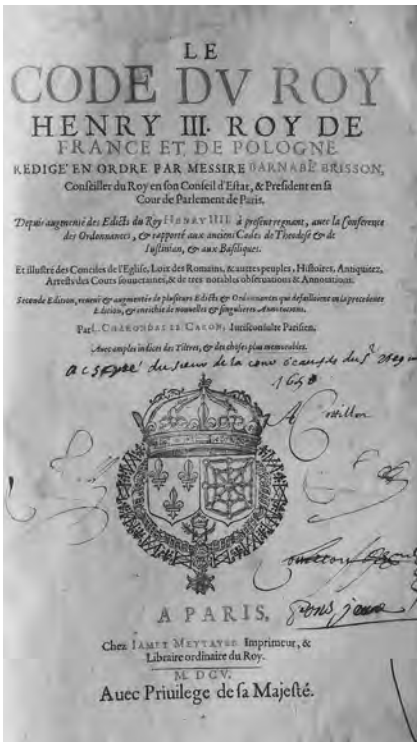 LE
CODE DV ROY
HENRY III. ROY DE
FRANCE ET DE POLOGNE
REDIGE' EN ORDRE PAR MESSIRE BARNABE BRISSON,
Conseiller du Roy en son Conseil d'Estat, & President en sa
Cour de Parlement de Paris.
Depuis augmenté des Edicts du Roy HENRY IIII. à present regnant, auec la Conference
des Ordonnances, & rapporté aux anciens Codes de Theodose & de
Iustinian, & aux Basiliques.
Et illustré des Conciles de l'Eglise, Loix des Romains, & autres peuples, Histoires, Antiquitez,
Arrests des Cours souueraines, & de tres notables obseruations & Annotations.
Seconde Edition, reueuë & augmentée de plusieurs Edicts & Ordonnances qui defailloient en la precedente
Edition, & enrichie de nouuelles & singulieres Annotations.
Par L. CHARONDAS LE CARON, Iurisconsulte Parisien.
Auec amples indices des Tiltres, & des choses plus memorables.
du sieur de la
A PARIS,
Chez IAMET METTAYER Imprimeur, &
Libraire ordinaire du Roy.
M. DCV.
Auec Priuilege de sa Majesté.